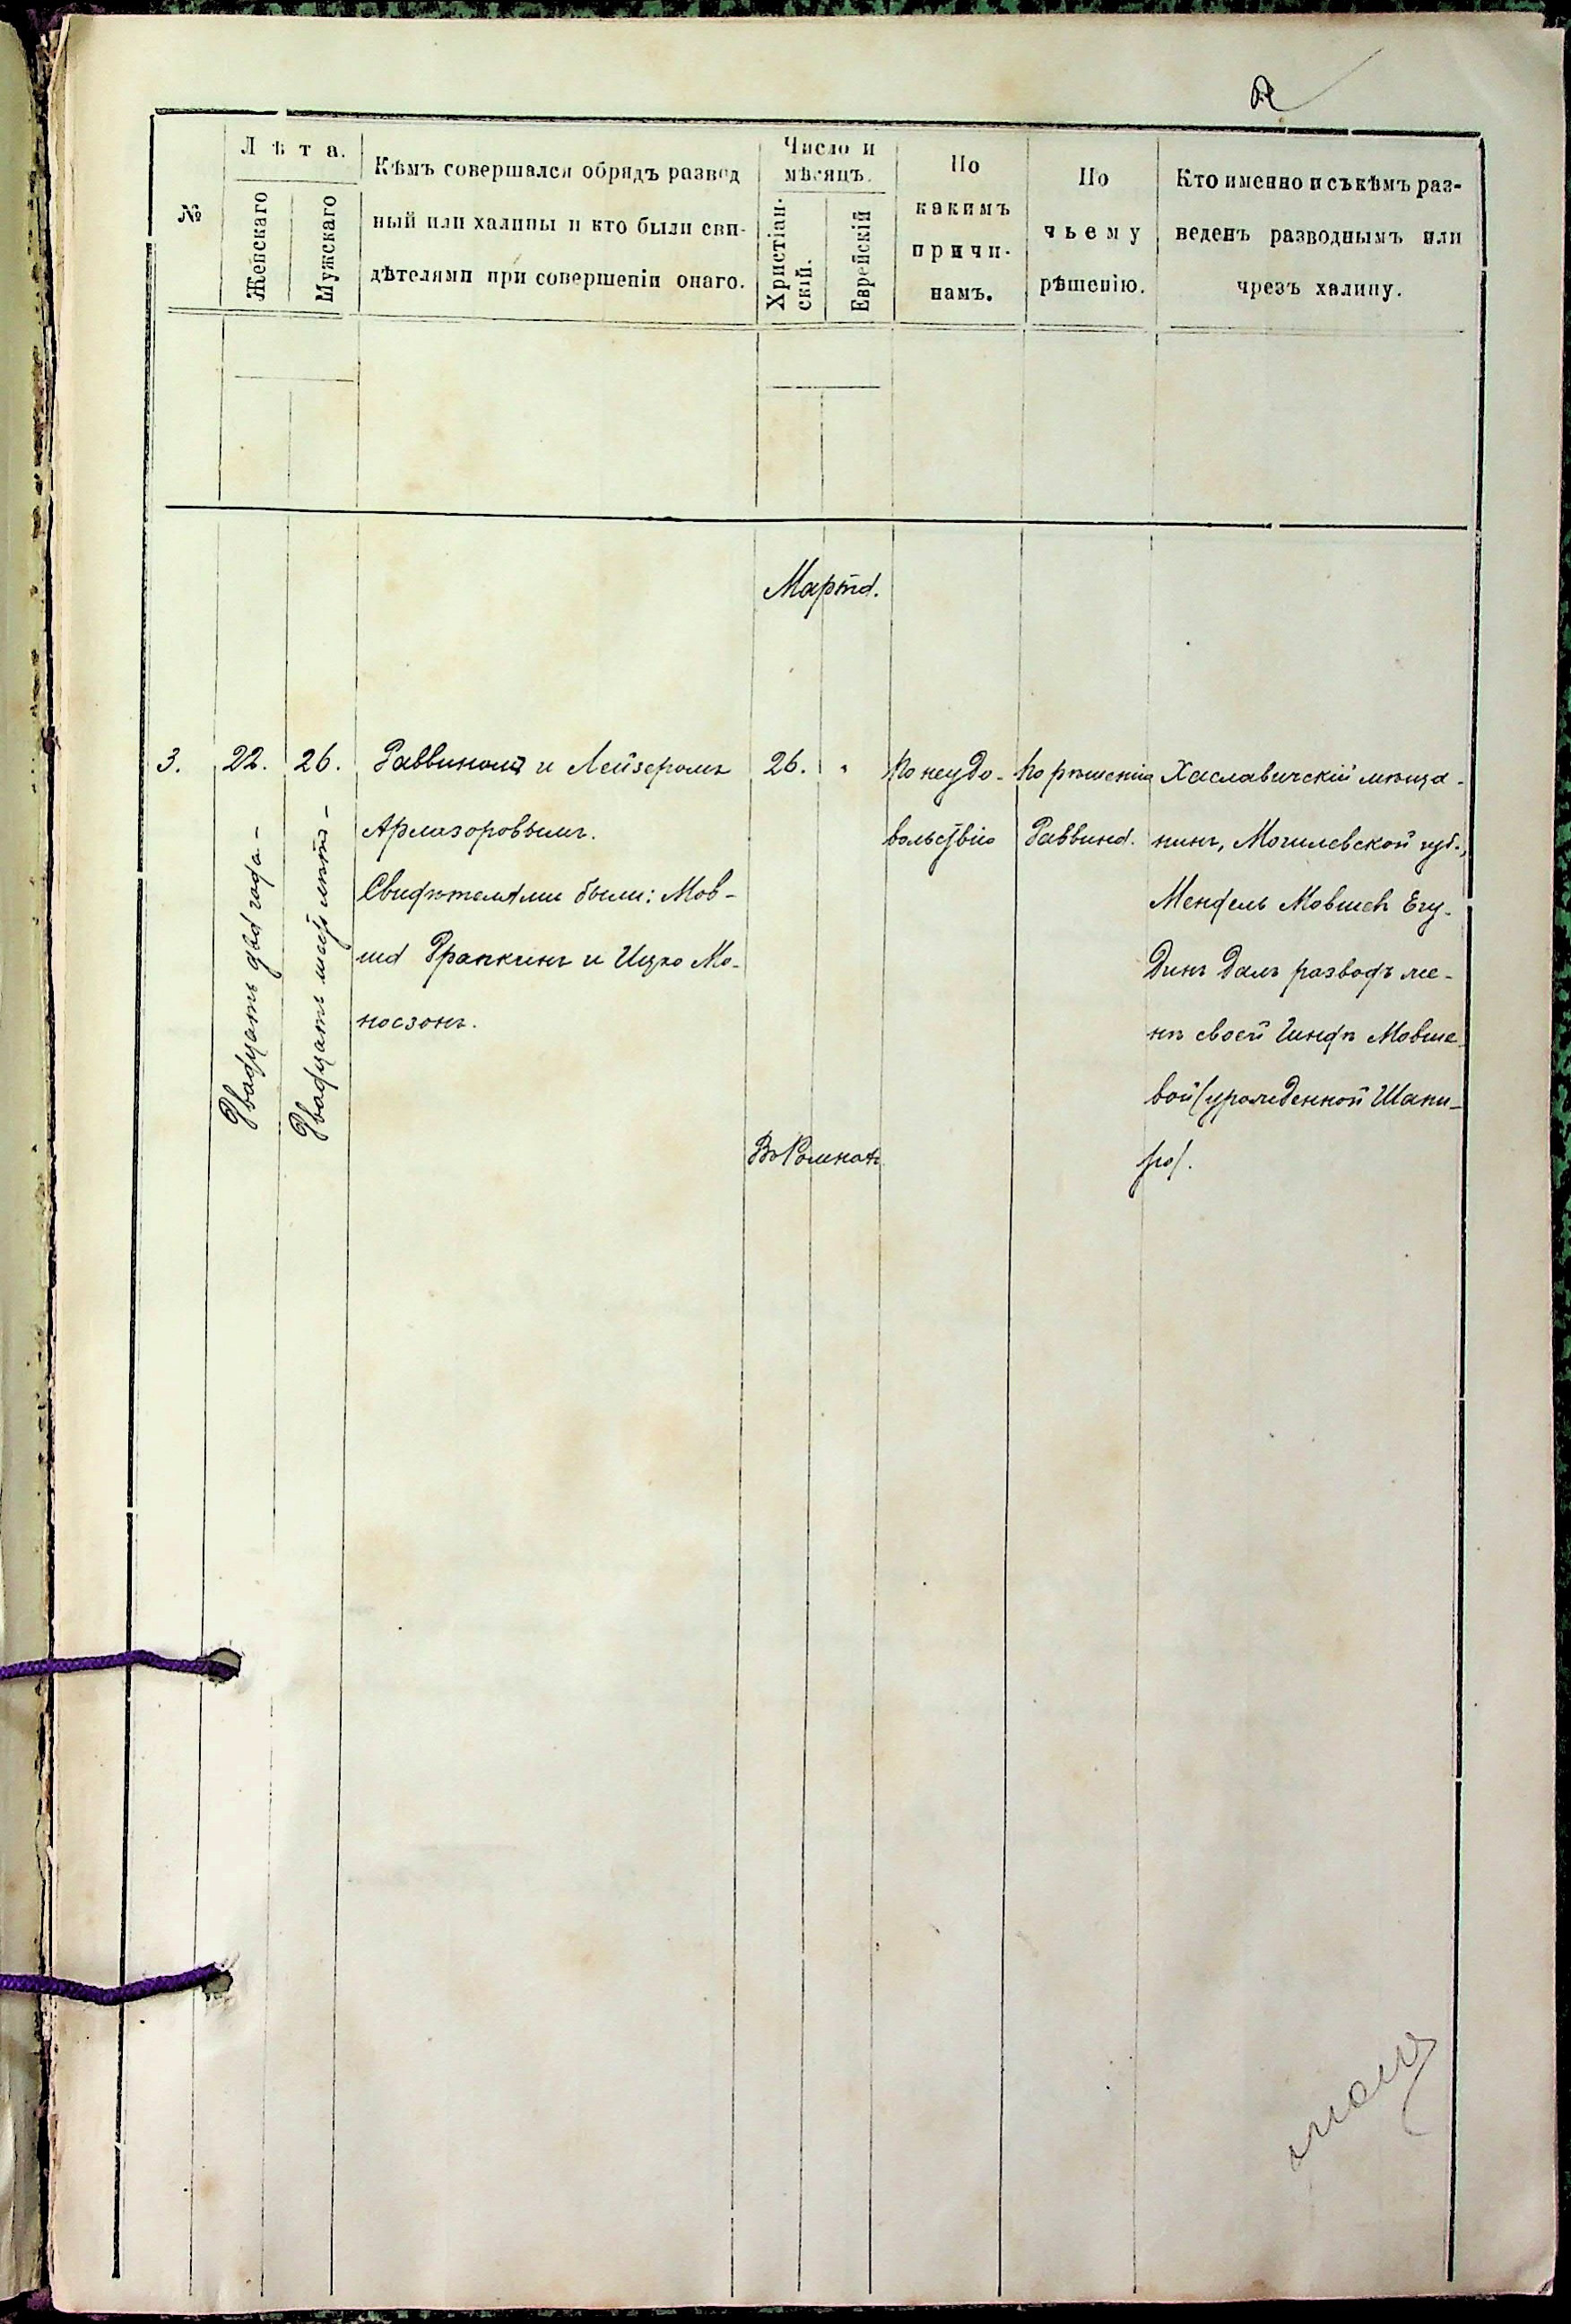 2
№
Лѣта.
Женскаго
Мужскаго
Кѣмъ совершался обрядъ развод
ный или халицы и кто были сви-
дѣтелями при совершеніи онаго.
Число и
мѣсяцъ.
Христіан-
скій.
Еврейскій
По
какимъ
причи-
намъ.
По
чьему
рѣшенію.
Кто именно и съ кѣмъ раз-
веденъ разводнымъ или
чрезъ халицу.
Марта.
3.
22.
Двадцать два года -
26.
Двадцать шесть лѣтъ -
Раввиномъ и Лейзеромъ
Арлазоровымъ.
Свидѣтелями были: Мов-
ша Франкинъ и Ицко Мо-
носзонъ.
26.
"
Въ Ромнахъ
По неудо-
вольствію
По рѣшенію
Раввина.
Хаславичскій мѣща-
нинъ, Могилевской губ.,
Мендель Мовшев Егу-
динъ далъ разводъ же-
нѣ своей Гиндѣ Мовше-
вой (урожденной Шапи-
ро).